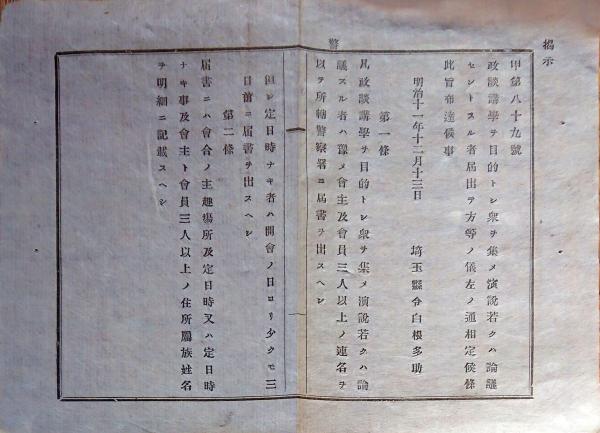 掲示
甲第八十九號
政談講學ヲ目的トシ衆ヲ集メ演説若クハ論議
セントスル者届出テ方等ノ儀左ノ通相定候條
此旨布達候事
明治十一年十二月十三日
埼玉縣令白根多助
第一條
凡政談講學ヲ目的トシ衆ヲ集メ演説若クハ論
議スル者ハ豫メ會主及會員三人以上ノ連名ヲ
以テ所轄警察署ニ届書ヲ出スヘシ
警
但シ定日時ナキ者ハ開會ノ日ヨリ少クモ三
日前ニ届書ヲ出スヘシ
第二條
届書ニハ會合ノ主趣場所及定日時又ハ定日時
ナキ事及會主ト會員三人以上ノ住所屬族姓名
ヲ明細ニ記載スヘシ